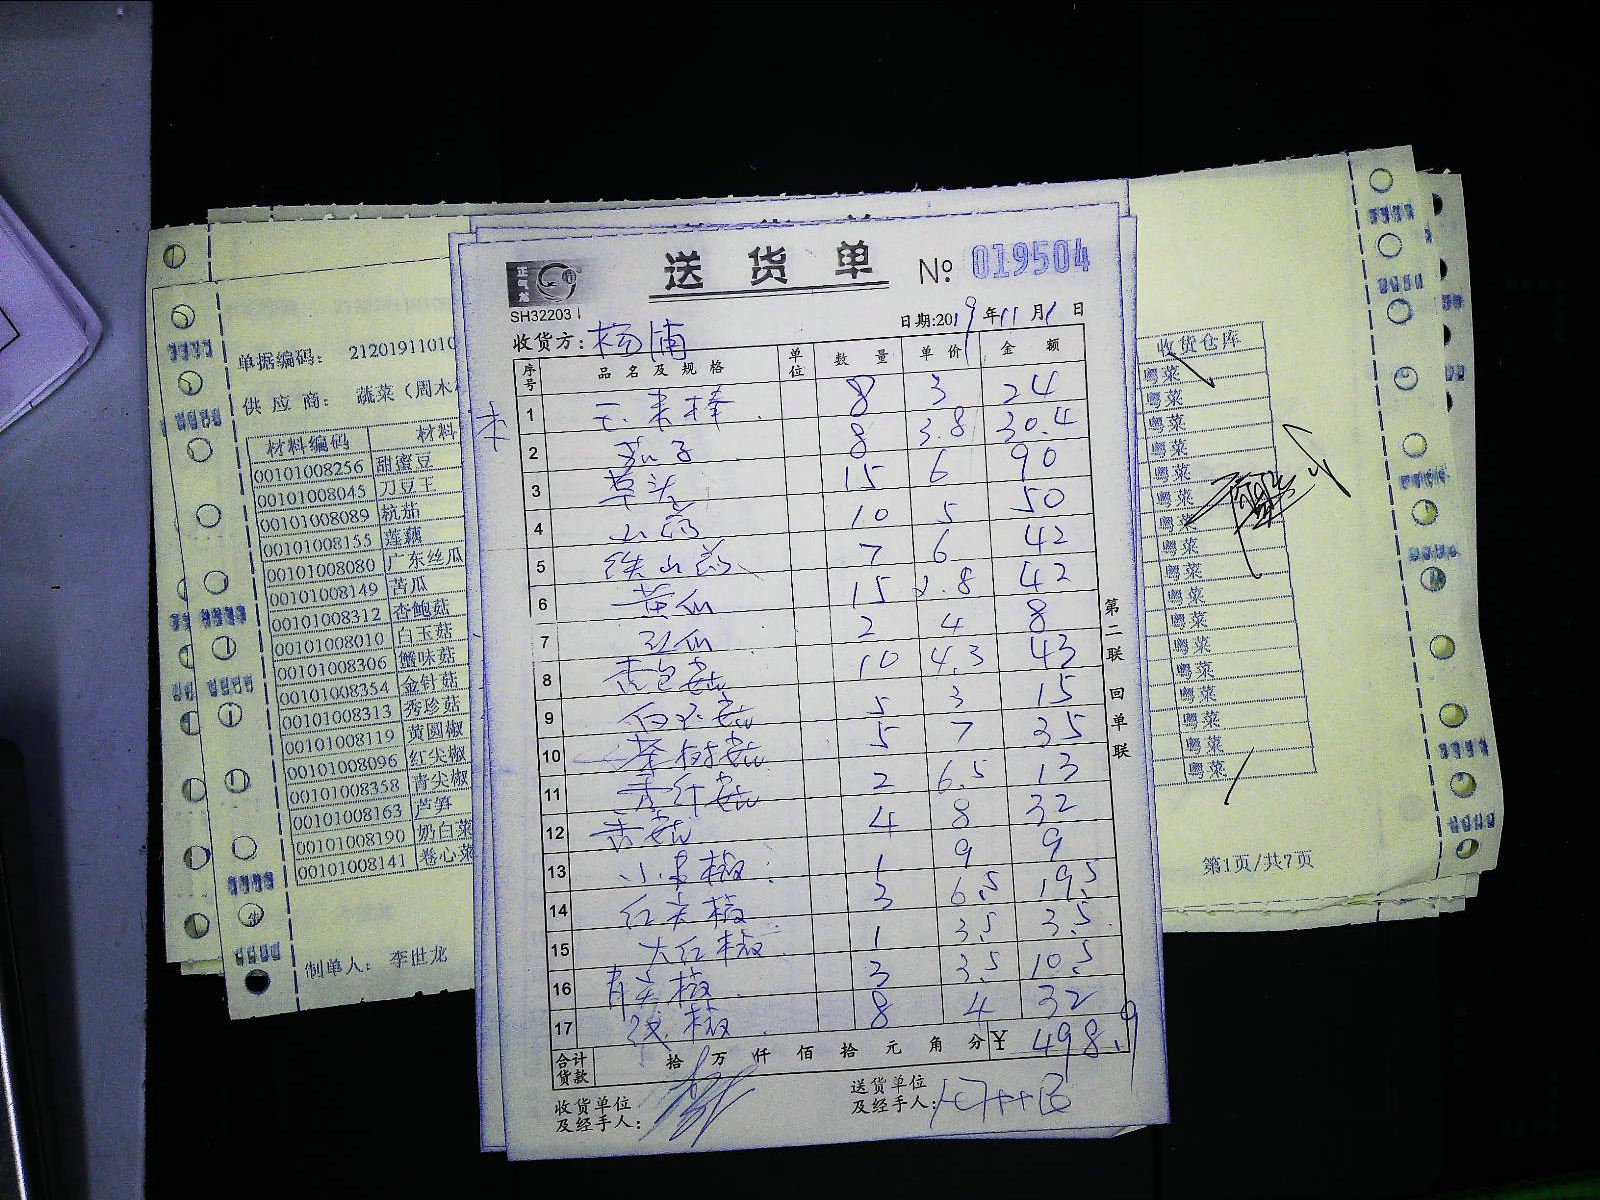 送货单 No 019504
正气龙
SH32203
收货方：杨浦 日期:2019年11月1日
序号 品名及规格 单位 数量 单价 金额
1 玉米棒 8 3 24
2 茄子 8 3.8 30.4
3 草头 15 6 90
4 山药 10 5 50
5 铁山药 7 6 42
6 黄瓜 15 2.8 42
7 2 4 8
8 10 4.3 43
9 白玉菇 5 3 15
10 茶树菇 5 7 35
11 2 6.5 13
12 香菇 4 8 32
13 小米椒 1 9 9
14 红尖椒 3 6.5 19.5
15 大红椒 1 3.5 3.5
16 青尖椒 3 3.5 10.5
17 线椒 8 4 32
合计货款 拾 万 仟 佰 拾 元 角 分 ¥ 498.9
收货单位及经手人：
送货单位及经手人：
第二联 回单联
单据编码： 21201911010
供应商： 蔬菜（周木
材料编码 材料
00101008256 甜蜜豆
00101008045 刀豆王
00101008089 杭茄
00101008155 莲藕
00101008080 广东丝瓜
00101008149 苦瓜
00101008312 杏鲍菇
00101008010 白玉菇
00101008306 蟹味菇
00101008354 金针菇
00101008313 秀珍菇
00101008119 黄圆椒
00101008096 红尖椒
00101008358 青尖椒
00101008163 芦笋
00101008190 奶白菜
00101008141 卷心菜
制单人： 李世龙
收货仓库
粤菜
粤菜
粤菜
粤菜
粤菜
粤菜
粤菜
粤菜
粤菜
粤菜
粤菜
粤菜
粤菜
粤菜
粤菜
粤菜
粤菜
第1页/共7页